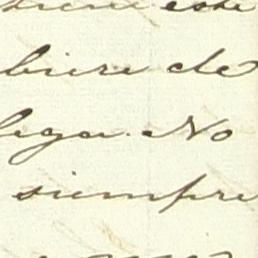 este
biere de
lega. No
siempre